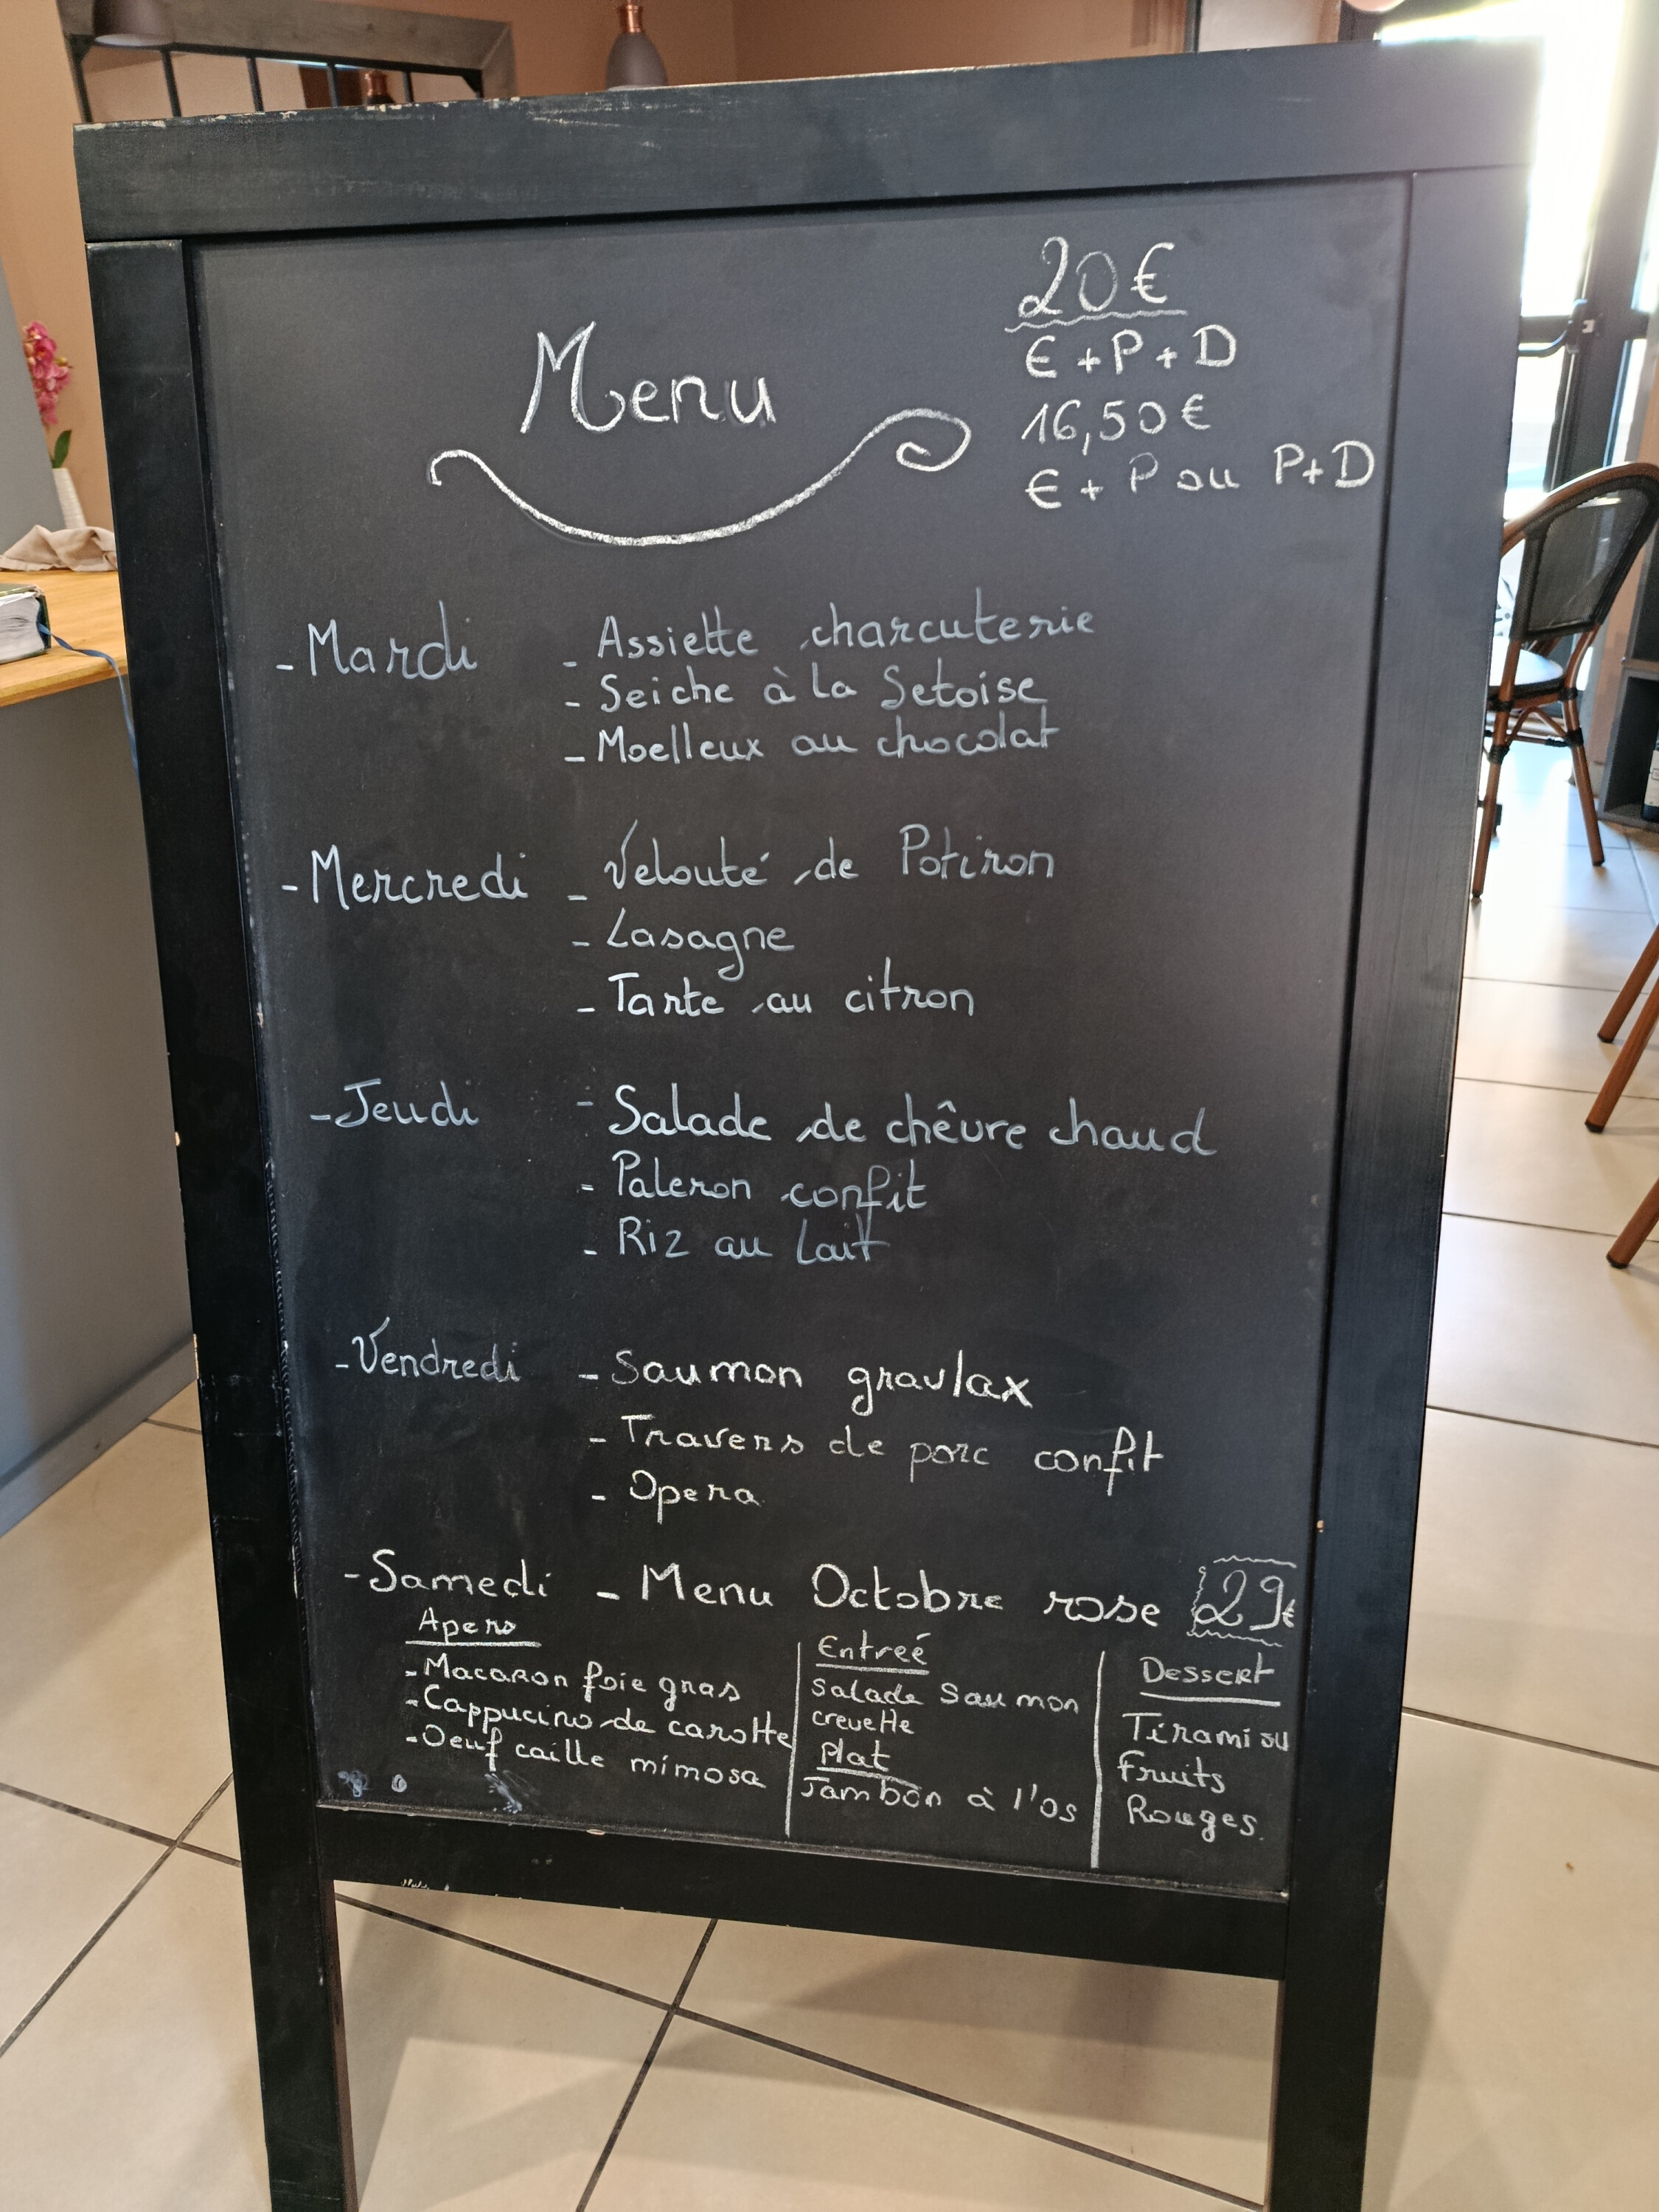 Menu
20€
E + P + D
16,50€
E + P ou P+D
- Mardi - Assiette charcuterie
- Seiche à la Setoise
- Moelleux au chocolat
- Mercredi - Velouté de Potiron
- Lasagne
- Tarte au citron
- Jeudi - Salade de chêvre chaud
- Paleron confit
- Riz au lait
- Vendredi - Saumon gravlax
- Travers de porc confit
- Opera
- Samedi - Menu Octobre rose 29€
Apero
- Macaron foie gras
- Cappucino de carotte
- Oeuf caille mimosa
Entreé
Salade Saumon
crevette
Plat
Jambon à l'os
Dessert
Tiramisu
Fruits
Rouges.